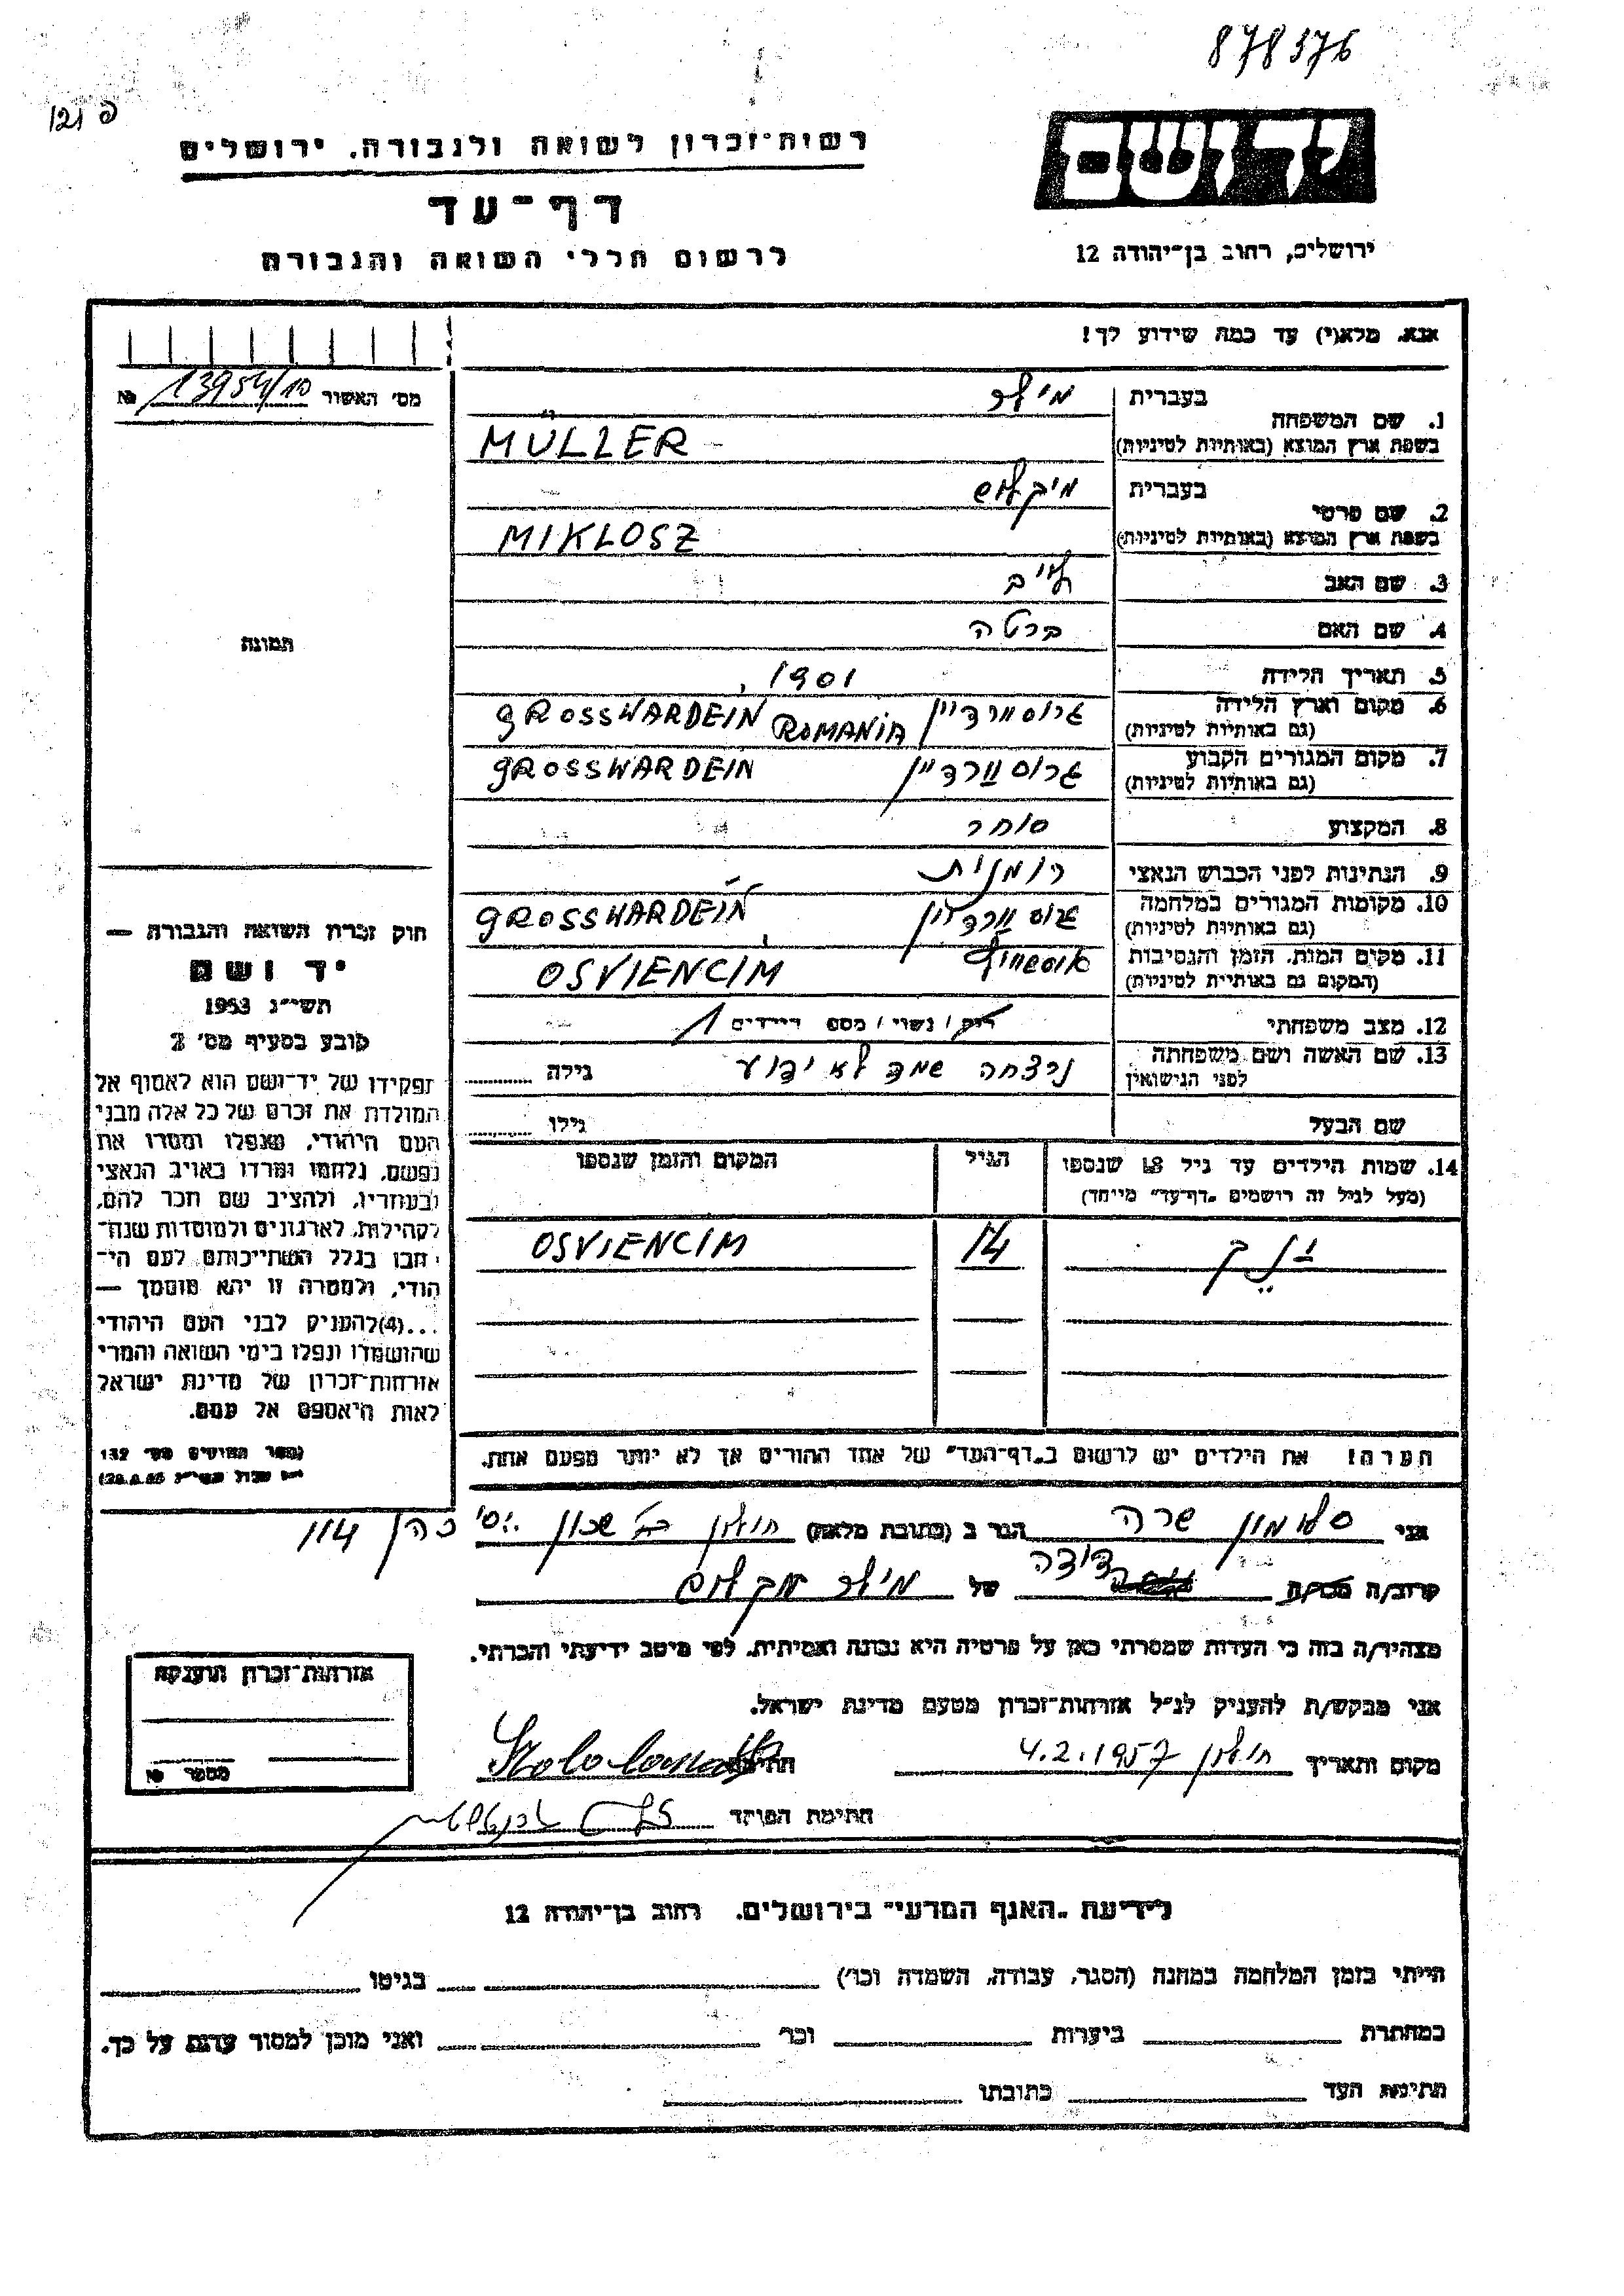 878376
פ 121
יד ושם
רשות־זכרון לשואה ולגבורה. ירושלים
דף־עד
לרשום חללי השואה והגבורה
ירושלים, רחוב בן־יהודה 12
אנא, מלא(י) עד כמה שידוע לך!
מס׳ האשור № 13954/10
תמונה
חוק זכרון השואה והגבורה —
יד ושם
תשי״ג 1953
קובע בסעיף מס׳ 2
תפקידו של יד־ושם הוא לאסוף אל
המולדת את זכרם של כל אלה מבני
העם היהודי, שנפלו ומסרו את
נפשם, נלחמו ומרדו באויב הנאצי
ובעוזריו, ולהציב שם וזכר להם,
לקהילות, לארגונים ולמוסדות שנח־
רבו בגלל השתייכותם לעם הי־
הודי, ולמטרה זו יהא מוסמך —
...(4) להעניק לבני העם היהודי
שהושמדו ונפלו בימי השואה והמרי
אזרחות־זכרון של מדינת ישראל
לאות היאספם אל עמם.
(ספר החוקים מס׳ 132
1. שם המשפחה בעברית מילר
בשפת ארץ המוצא (באותיות לטיניות) MÜLLER
2. שם פרטי בעברית מיקלוש
בשפת ארץ המוצא (באותיות לטיניות) MIKLOSZ
3. שם האב
4. שם האם ברטה
5. תאריך הלידה 1901
6. מקום וארץ הלידה (גם באותיות לטיניות) גרוסורדיין GROSSWARDEIN ROMANIA
7. מקום המגורים הקבוע (גם באותיות לטיניות) גרוס וורדיין GROSSWARDEIN
8. המקצוע סוחר
9. הנתינות לפני הכבוש הנאצי רומנית
10. מקומות המגורים במלחמה (גם באותיות לטיניות) גרוס וורדיין GROSSWARDEIN
11. מקום המות, הזמן והנסיבות (המקום גם באותיות לטיניות) OSVIENCIM
12. מצב משפחתי רווק / נשוי / מספר הילדים 1
13. שם האשה ושם משפחתה לפני הנישואין נרצחה שמה לא ידוע גילה
שם הבעל גילו
14. שמות הילדים עד גיל 18 שנספו הגיל המקום והזמן שנספו
(מעל לגיל זה רושמים „דף־עד״ מיוחד)
14 OSVIENCIM
הערה! את הילדים יש לרשום ב„דף־העד״ של אחד ההורים אך לא יותר מפעם אחת.
אני סלומון שרה הגר ב (כתובת מלאה) חולון שכון כהן 114
קרוב/ה מכר/ה דודה של מילר מיקלוש
מצהיר/ה בזה כי העדות שמסרתי כאן על פרטיה היא נכונה ואמיתית, לפי מיטב ידיעתי והכרתי.
אני מבקש/ת להעניק לנ״ל אזרחות־זכרון מטעם מדינת ישראל.
מקום ותאריך חולון 4.2.1957 חתימה
חתימת הפוקד
אזרחות־זכרון הוענקה
מספר №
לידיעת „האגף המדעי״ בירושלים. רחוב בן־יהודה 12
הייתי בזמן המלחמה במחנה (הסגר, עבודה, השמדה וכו׳) בגיטו
במחתרת ביערות וכו׳ ואני מוכן למסור עדות על כך.
חתימת העד כתובתו